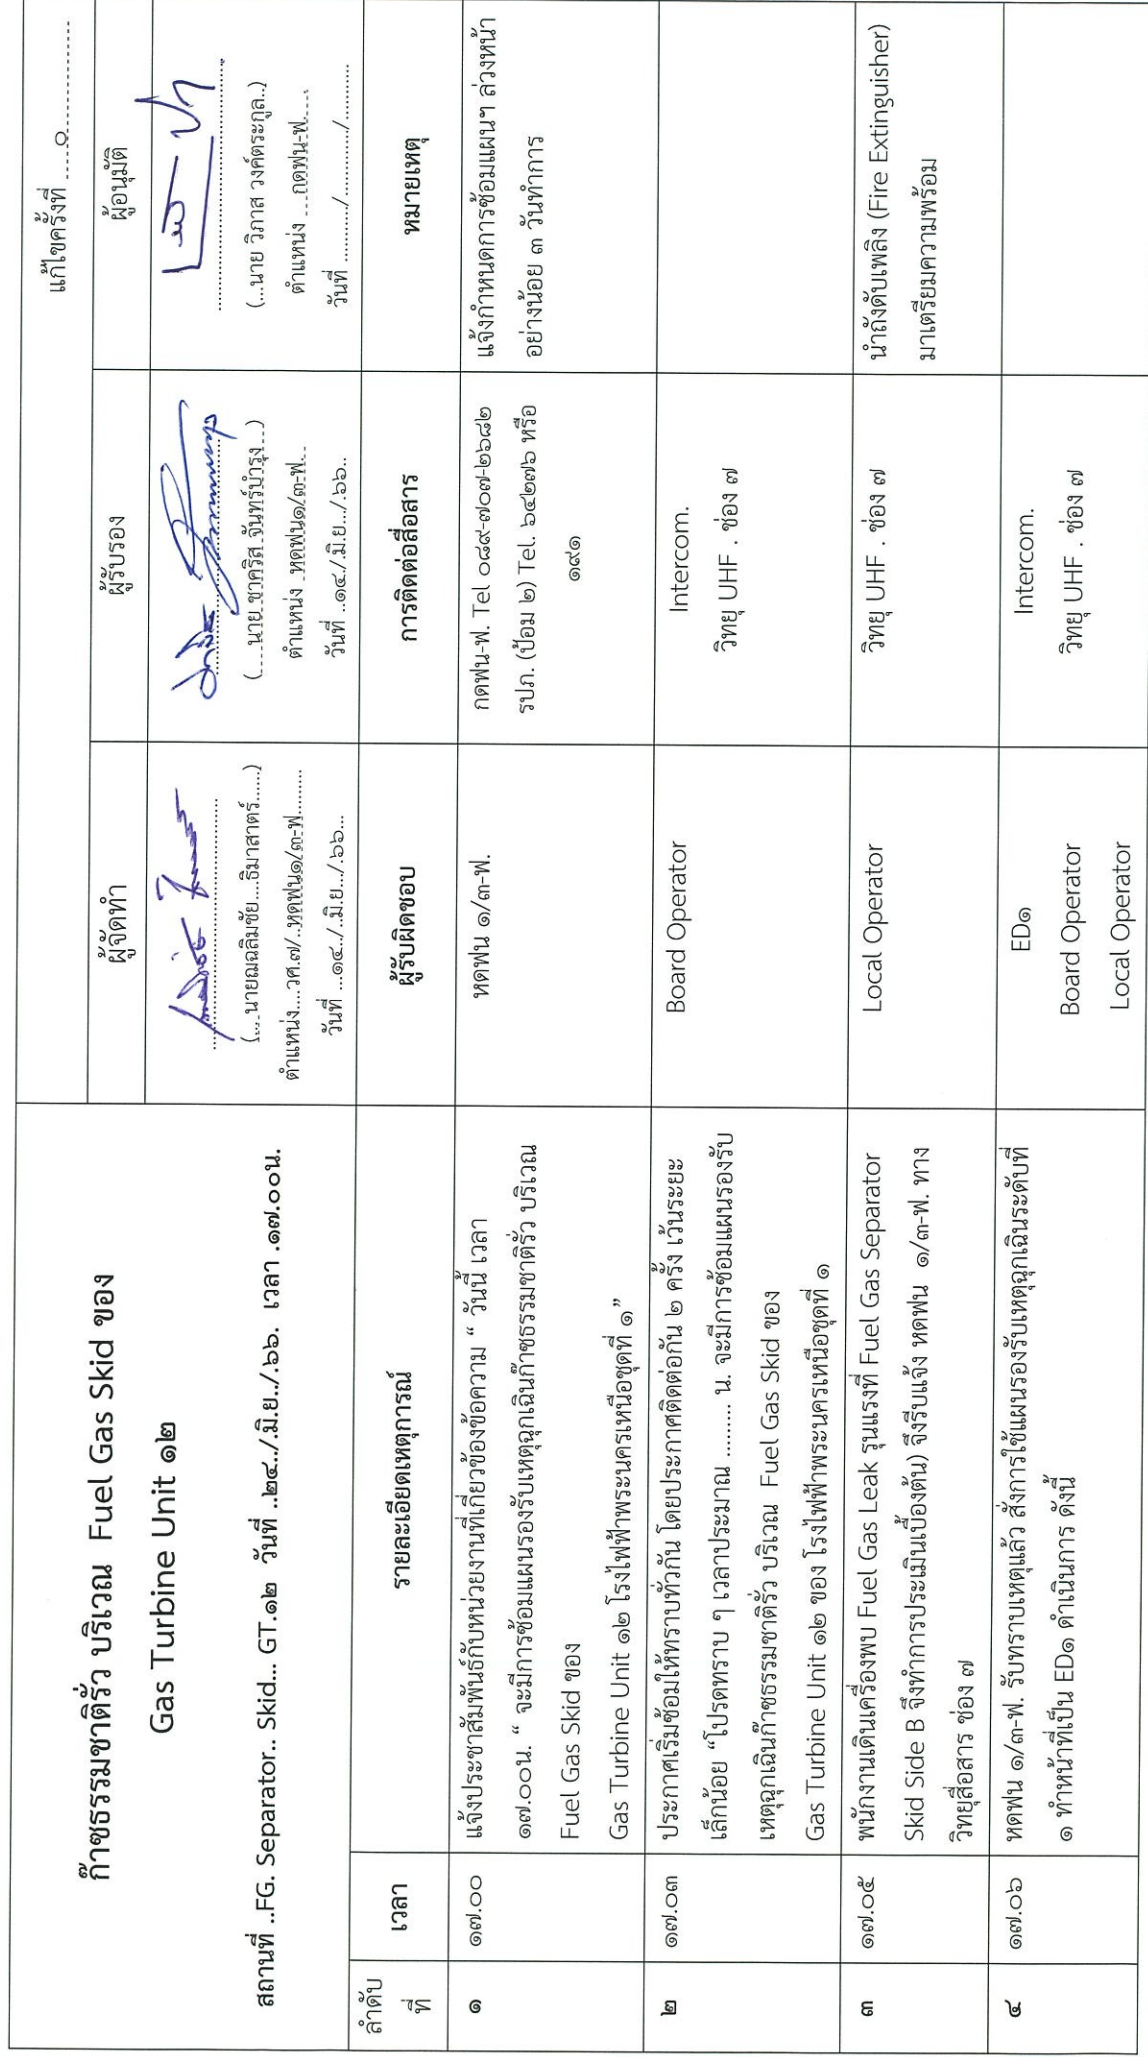 ก๊าซธรรมชาติรั่ว บริเวณ Fuel Gas Skid ของ
Gas Turbine Unit ๑๒
สถานที่ ..FG. Separator.. Skid... GT.๑๒ วันที่ ..๒๔../.มิ.ย../.๖๖. เวลา .๑๗.๐๐น.
แก้ไขครั้งที่ .....๐...............
ผู้จัดทำ
ผู้รับรอง
ผู้อนุมัติ
(....นายฌลิมชัย...ธิมาสาตร์......)
ตำแหน่ง...วศ.๗/..หดฟน๑/๓-ฟ..........
วันที่ ...๑๔../..มิ.ย.../.๖๖...
(....นาย ชาคริส จันทร์บำรุง...)
ตำแหน่ง ..หดฟน๑/๓-ฟ...
วันที่ ..๑๔./.มิ.ย.../.๖๖..
(...นาย วิภาส วงค์ตระกูล..)
ตำแหน่ง ....กดฟน-ฟ.....
วันที่ .........../............./...........
ลำดับ
ที่
เวลา
รายละเอียดเหตุการณ์
ผู้รับผิดชอบ
การติดต่อสื่อสาร
หมายเหตุ
๑
๑๗.๐๐
แจ้งประชาสัมพันธ์กับหน่วยงานที่เกี่ยวข้องข้อความ “ วันนี้ เวลา
๑๗.๐๐น. “ จะมีการซ้อมแผนรองรับเหตุฉุกเฉินก๊าซธรรมชาติรั่ว บริเวณ
Fuel Gas Skid ของ
Gas Turbine Unit ๑๒ โรงไฟฟ้าพระนครเหนือชุดที่ ๑”
หดฟน ๑/๓-ฟ.
กดฟน-ฟ. Tel ๐๘๙-๗๐๗-๒๖๘๒
รปภ. (ป้อม ๒) Tel. ๖๔๒๗๖ หรือ
๑๙๑
แจ้งกำหนดการซ้อมแผนฯ ล่วงหน้า
อย่างน้อย ๓ วันทำการ
๒
๑๗.๐๓
ประกาศเริ่มซ้อมให้ทราบทั่วกัน โดยประกาศติดต่อกัน ๒ ครั้ง เว้นระยะ
เล็กน้อย “โปรดทราบ ๆ เวลาประมาณ .......... น. จะมีการซ้อมแผนรองรับ
เหตุฉุกเฉินก๊าซธรรมชาติรั่ว บริเวณ Fuel Gas Skid ของ
Gas Turbine Unit ๑๒ ของ โรงไฟฟ้าพระนครเหนือชุดที่ ๑
Board Operator
Intercom.
วิทยุ UHF . ช่อง ๗
๓
๑๗.๐๕
พนักงานเดินเครื่องพบ Fuel Gas Leak รุนแรงที่ Fuel Gas Separator
Skid Side B จึงทำการประเมินเบื้องต้น) จึงรีบแจ้ง หดฟน ๑/๓-ฟ. ทาง
วิทยุสื่อสาร ช่อง ๗
Local Operator
วิทยุ UHF . ช่อง ๗
นำถังดับเพลิง (Fire Extinguisher)
มาเตรียมความพร้อม
๔
๑๗.๐๖
หดฟน ๑/๓-ฟ. รับทราบเหตุแล้ว สั่งการใช้แผนรองรับเหตุฉุกเฉินระดับที่
๑ ทำหน้าที่เป็น ED๑ ดำเนินการ ดังนี้
ED๑
Board Operator
Local Operator
Intercom.
วิทยุ UHF . ช่อง ๗